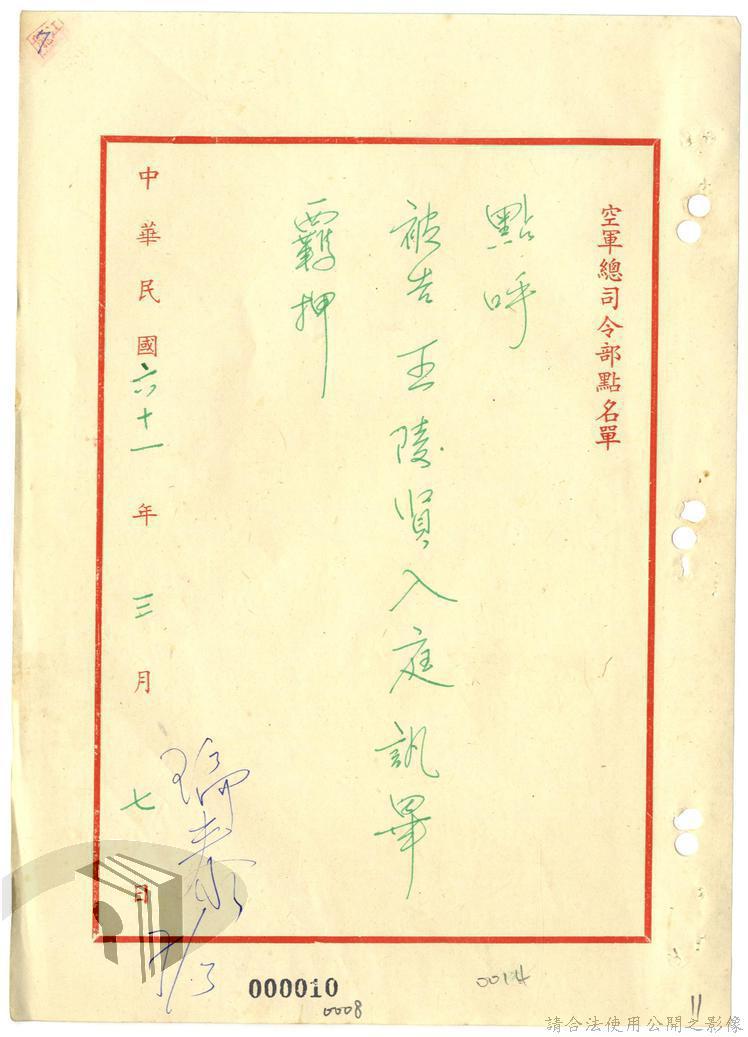 空軍總司令部點名單
點呼
被告王陵貝入庭訊畢
羈押
中華民國六十一年三月七日
000010
0008
0014
11
請合法使用公開之影像